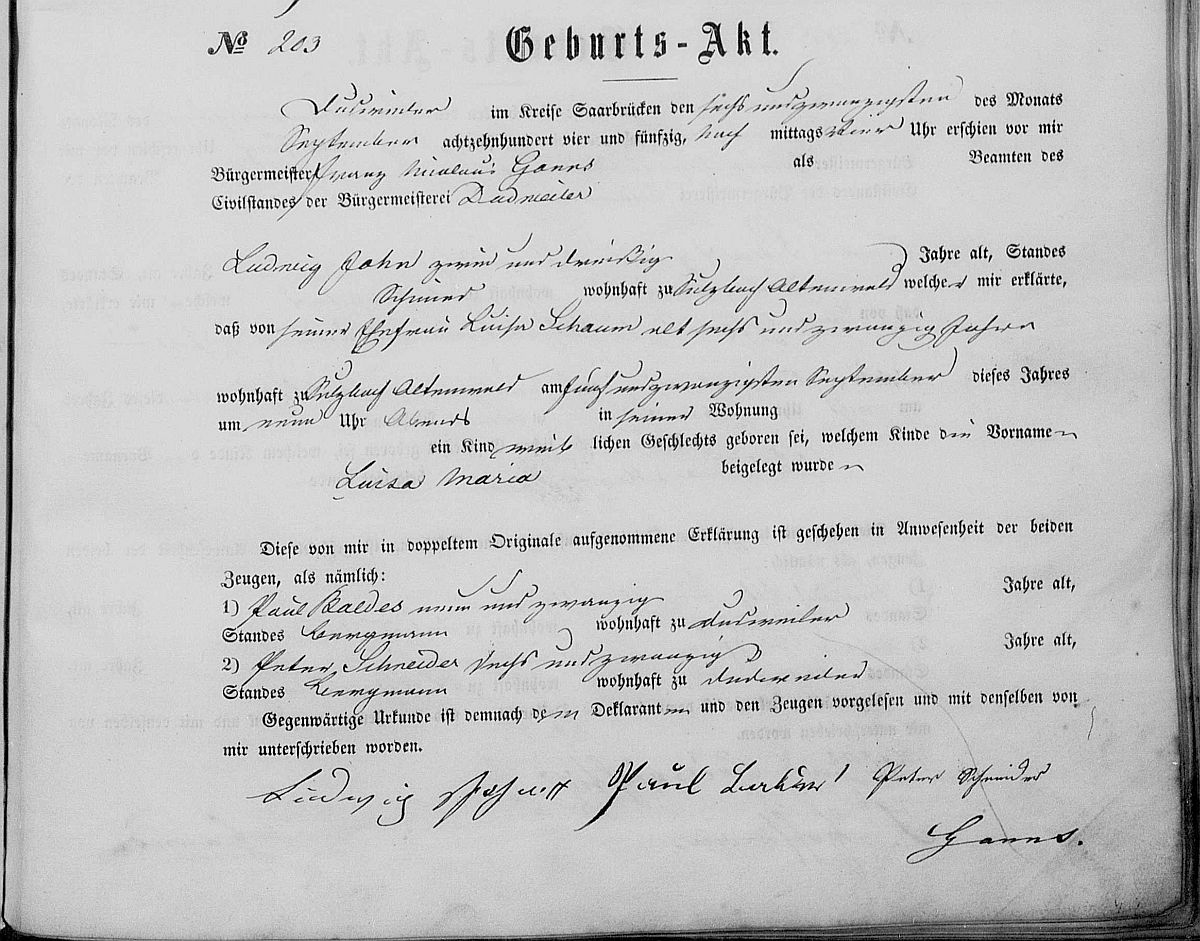 № 203 Geburts-Akt.
Dudweiler im Kreise Saarbrücken den sechs und zwanzigsten des Monats
September achtzehnhundert vier und fünfzig, Nach mittags vier Uhr erschien vor mir
Bürgermeister Franz Nicolaus als Beamten des
Civilstandes der Bürgermeisterei Dudweiler
Ludwig John zwei und dreißig Jahre alt, Standes
wohnhaft zu Sulzbach Altenwald welcher mir erklärte,
daß von seiner Ehefrau Luisa Schaum alt sechs und zwanzig Jahre
wohnhaft zu Sulzbach Altenwald am fünf und zwanzigsten September dieses Jahres
um neun Uhr Abends in seiner Wohnung
ein Kind weib lichen Geschlechts geboren sei, welchem Kinde die Vornamen
Luisa Maria beigelegt wurden
Diese von mir in doppeltem Originale aufgenommene Erklärung ist geschehen in Anwesenheit der beiden
Zeugen, als nämlich:
1) Paul Baldes neun und zwanzig Jahre alt,
Standes Bergmann wohnhaft zu Dudweiler
2) Peter Schneider sechs und zwanzig Jahre alt,
Standes Bergmann wohnhaft zu Dudweiler
Gegenwärtige Urkunde ist demnach dem Deklaranten und den Zeugen vorgelesen und mit denselben von
mir unterschrieben worden.
Ludwig Paul Peter Schneider